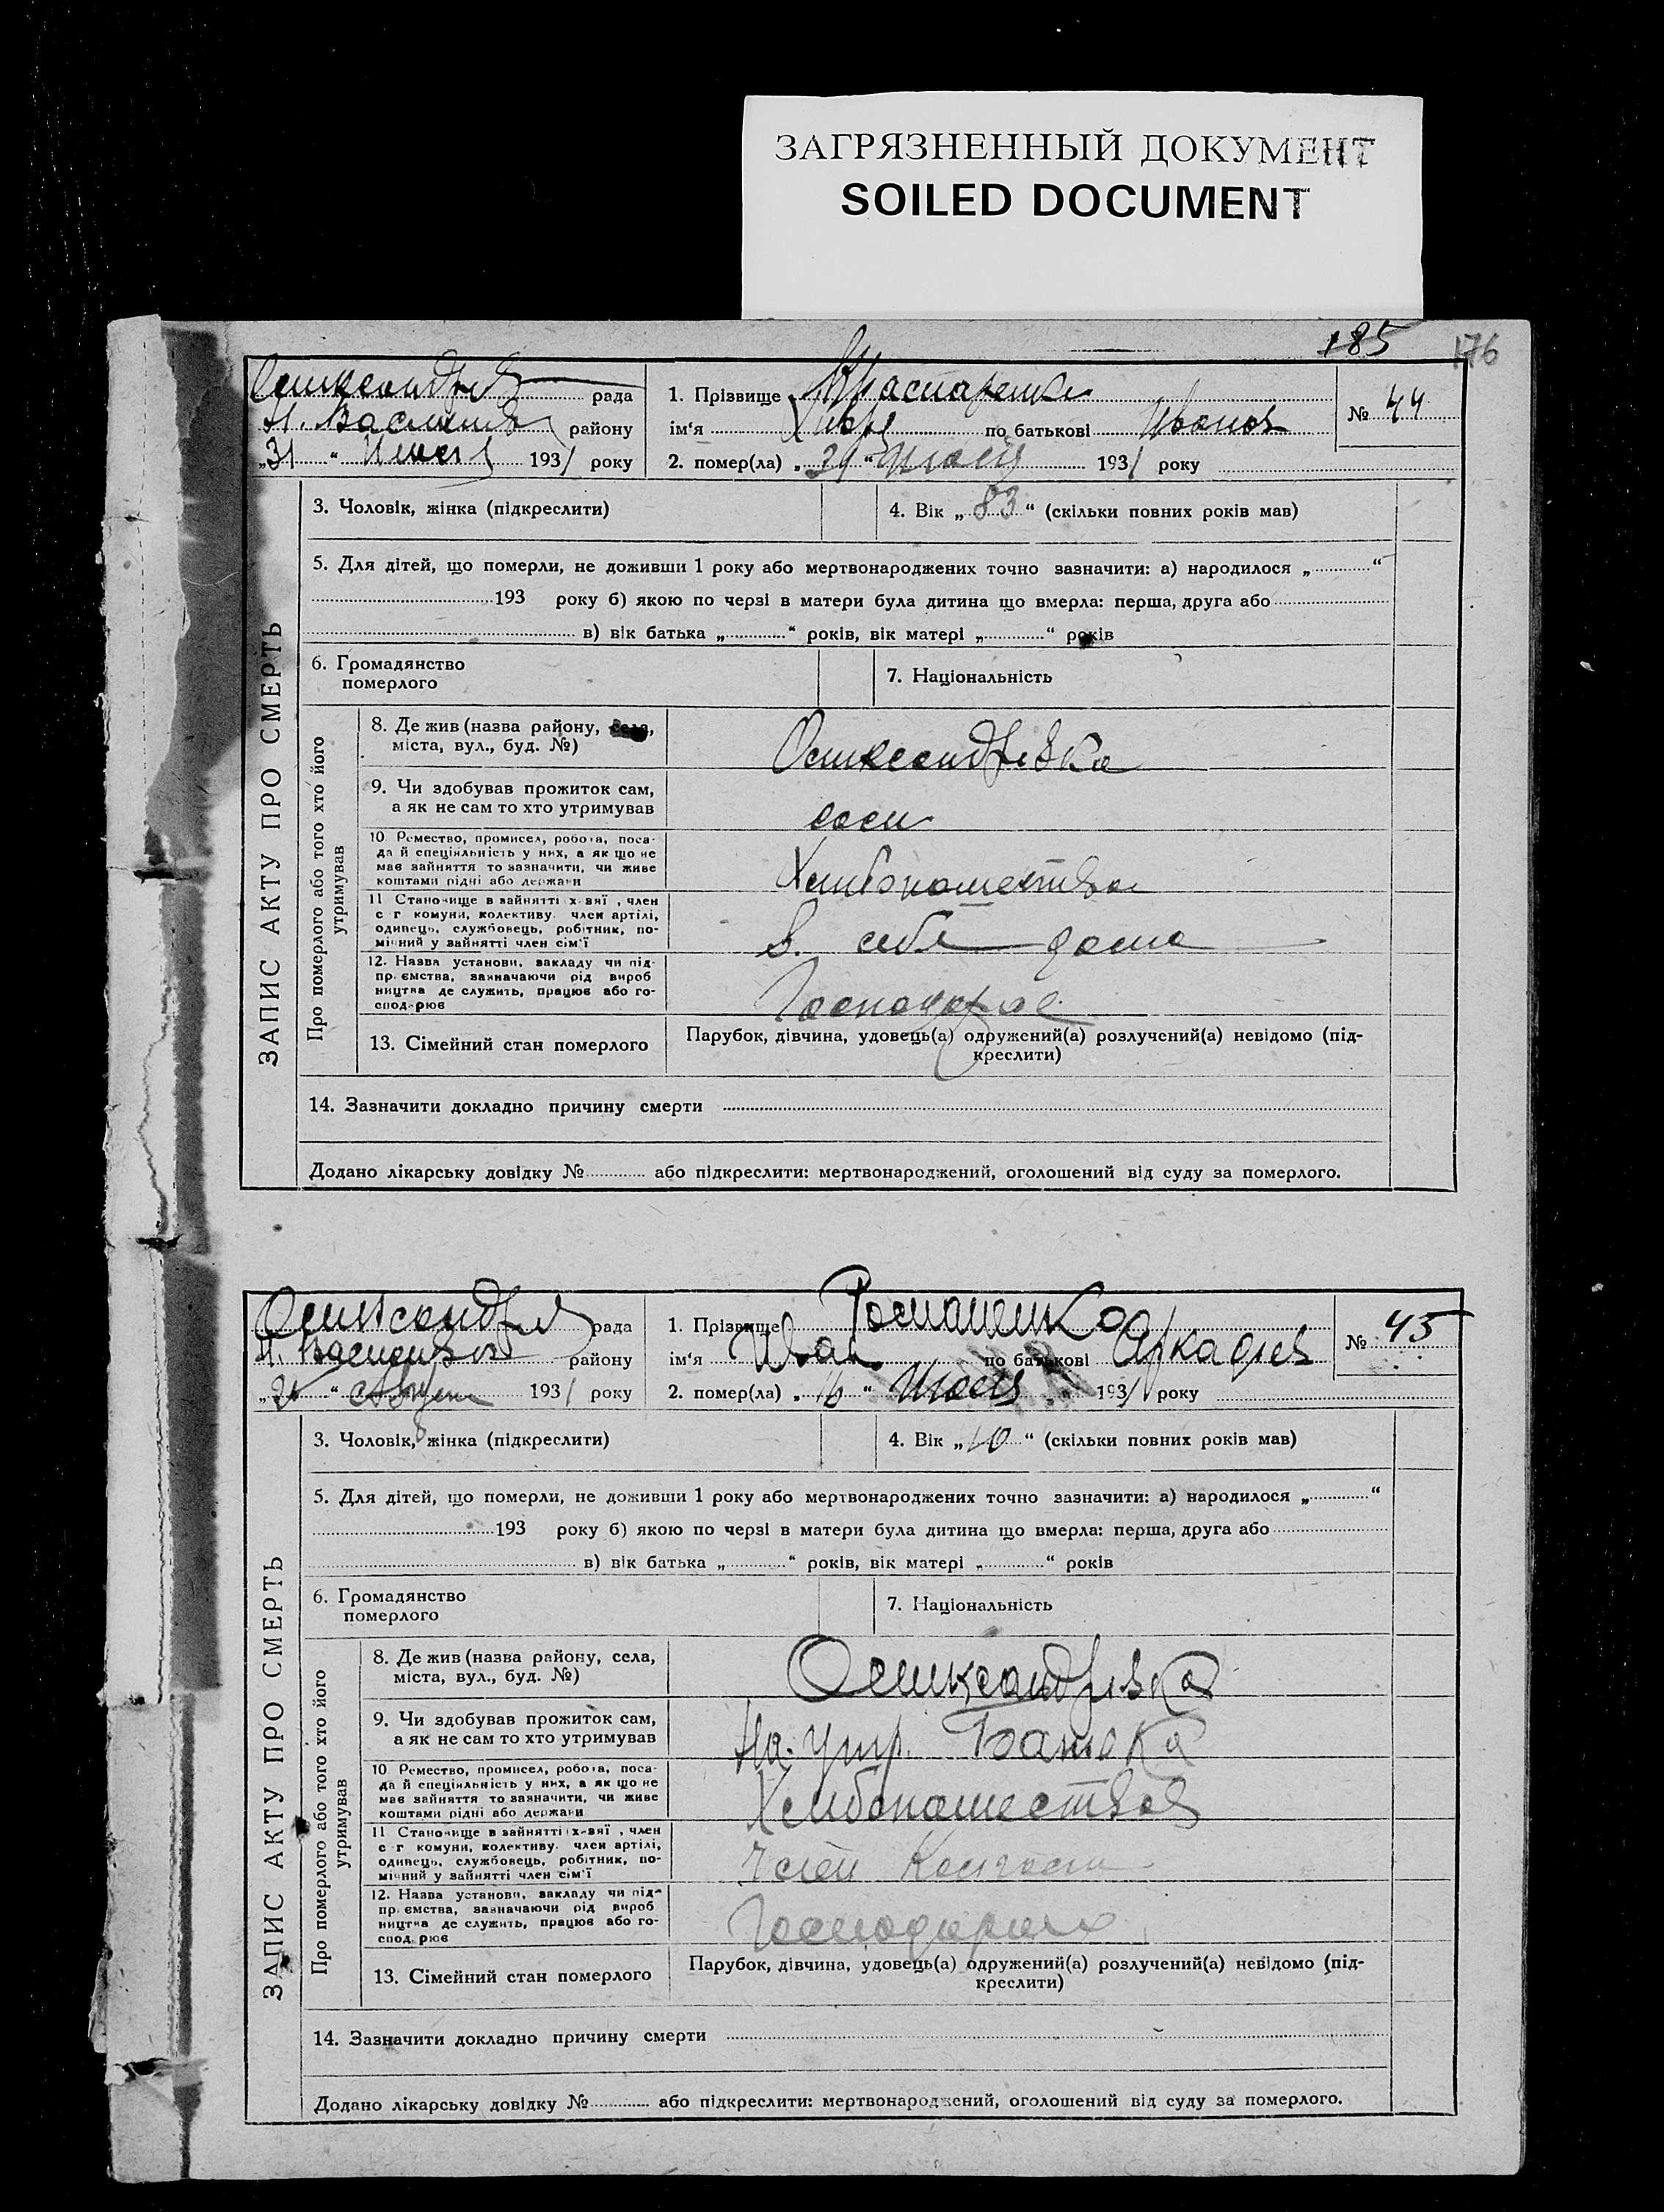 ЗАГРЯЗНЕННЫЙ ДОКУМЕНТ
SOILED DOCUMENT
185 176
рада
району
„31“ 1931 року
1. Прізвище
ім'я по батькові Иванов
2. помер(ла) 1931 року
№ 44
ЗАПИС АКТУ ПРО СМЕРТЬ
3. Чоловік, жінка (підкреслити)
4. Вік „83“ (скільки повних років мав)
5. Для дітей, що померли, не доживши 1 року або мертвонароджених точно зазначити: а) народилося „ “
193 року б) якою по черзі в матери була дитина що вмерла: перша, друга або
в) вік батька „ “ років, вік матері „ “ років
6. Громадянство
померлого
7. Національність
Про померлого або того хто його
утримував
8. Де жив (назва району, села,
міста, вул., буд. №)
Олександрівка
9. Чи здобував прожиток сам,
а як не сам то хто утримував
сам
10 Ремество, промисел, робота, поса-
да й спеціяльність у них, а як що не
має зайняття то зазначити, чи живе
коштами рідні або держави
Хлибопашества
11 Становище в зайнятті х-зяї, член
с г комуни, колективу член артілі,
одинець, службовець, робітник, по-
мічний у зайнятті член сім'ї
в. себя дома
12. Назва установи, закладу чи під-
пр ємства, зазначаючи рід вироб
ництва де служить, працює або го-
сподарює
13. Сімейний стан померлого
Парубок, дівчина, удовець(а) одружений(а) розлучений(а) невідомо (під-
креслити)
14. Зазначити докладно причину смерти
Додано лікарську довідку № або підкреслити: мертвонароджений, оголошений від суду за померлого.
рада
району
1931 року
1. Прізвище Романенко
ім'я Иван по батькові Аркадиев
2. помер(ла) 1931 року
№ 45
ЗАПИС АКТУ ПРО СМЕРТЬ
3. Чоловік, жінка (підкреслити)
4. Вік „10“ (скільки повних років мав)
5. Для дітей, що померли, не доживши 1 року або мертвонароджених точно зазначити: а) народилося „ “
193 року б) якою по черзі в матери була дитина що вмерла: перша, друга або
в) вік батька „ “ років, вік матері „ “ років
6. Громадянство
померлого
7. Національність
Про померлого або того хто його
утримував
8. Де жив (назва району, села,
міста, вул., буд. №)
Олександрівка
9. Чи здобував прожиток сам,
а як не сам то хто утримував
На. утр. Батька
10 Ремество, промисел, робота, поса-
да й спеціяльність у них, а як що не
має зайняття то зазначити, чи живе
коштами рідні або держави
Хлибопашества
11 Становище в зайнятті х-зяї, член
с г комуни, колективу член артілі,
одинець, службовець, робітник, по-
мічний у зайнятті член сім'ї
12. Назва установи, закладу чи під-
пр ємства, зазначаючи рід вироб
ництва де служить, працює або го-
сподарює
13. Сімейний стан померлого
Парубок, дівчина, удовець(а) одружений(а) розлучений(а) невідомо (під-
креслити)
14. Зазначити докладно причину смерти
Додано лікарську довідку № або підкреслити: мертвонароджений, оголошений від суду за померлого.